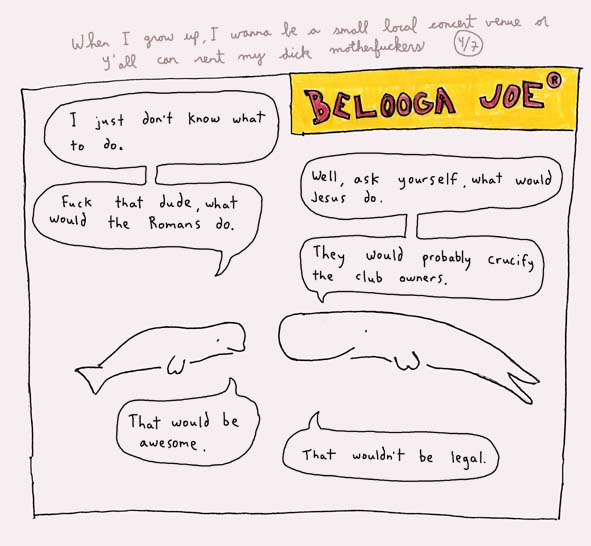 When I grow up, I wanna be a small local concert venue or
y'all can rent my dick motherfuckers 4/7
BELOOGA JOE®
I just don't know what
to do.
Well, ask yourself, what would
Jesus do.
Fuck that dude, what
would the Romans do.
They would probably crucify
the club owners.
That would be
awesome.
That wouldn't be legal.